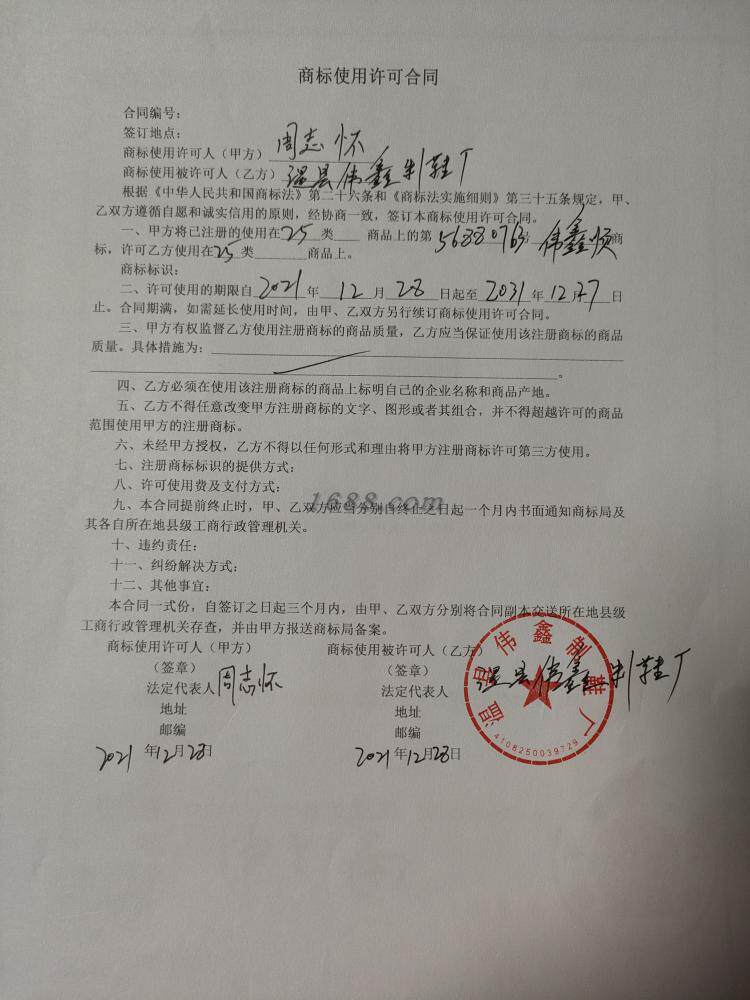 商标使用许可合同
合同编号：
签订地点：
商标使用许可人（甲方）周志怀
商标使用被许可人（乙方）温县伟鑫制鞋厂
根据《中华人民共和国商标法》第二十六条和《商标法实施细则》第三十五条规定，甲、
乙双方遵循自愿和诚实信用的原则，经协商一致，签订本商标使用许可合同。
一、甲方将已注册的使用在25类 商品上的第56880763号 伟鑫顺 商
标，许可乙方使用在25类 商品上。
商标标识：
二、许可使用的期限自2021年12月28日起至2031年12.27日
止。合同期满，如需延长使用时间，由甲、乙双方另行续订商标使用许可合同。
三、甲方有权监督乙方使用注册商标的商品质量，乙方应当保证使用该注册商标的商品
质量。具体措施为：
四、乙方必须在使用该注册商标的商品上标明自己的企业名称和商品产地。
五、乙方不得任意改变甲方注册商标的文字、图形或者其组合，并不得超越许可的商品
范围使用甲方的注册商标。
六、未经甲方授权，乙方不得以任何形式和理由将甲方注册商标许可第三方使用。
七、注册商标标识的提供方式：
八、许可使用费及支付方式：
1688.com
九、本合同提前终止时，甲、乙双方应当分别自终止之日起一个月内书面通知商标局及
其各自所在地县级工商行政管理机关。
十、违约责任：
十一、纠纷解决方式：
十二、其他事宜：
本合同一式份，自签订之日起三个月内，由甲、乙双方分别将合同副本交送所在地县级
工商行政管理机关存查，并由甲方报送商标局备案。
商标使用许可人（甲方） 商标使用被许可人（乙方）
（签章） （签章）温县伟鑫制鞋厂
法定代表人周志怀 法定代表人
地址 地址
邮编 邮编
2021年12月28日 2021年12月28日
温县伟鑫制鞋厂
4108250039729